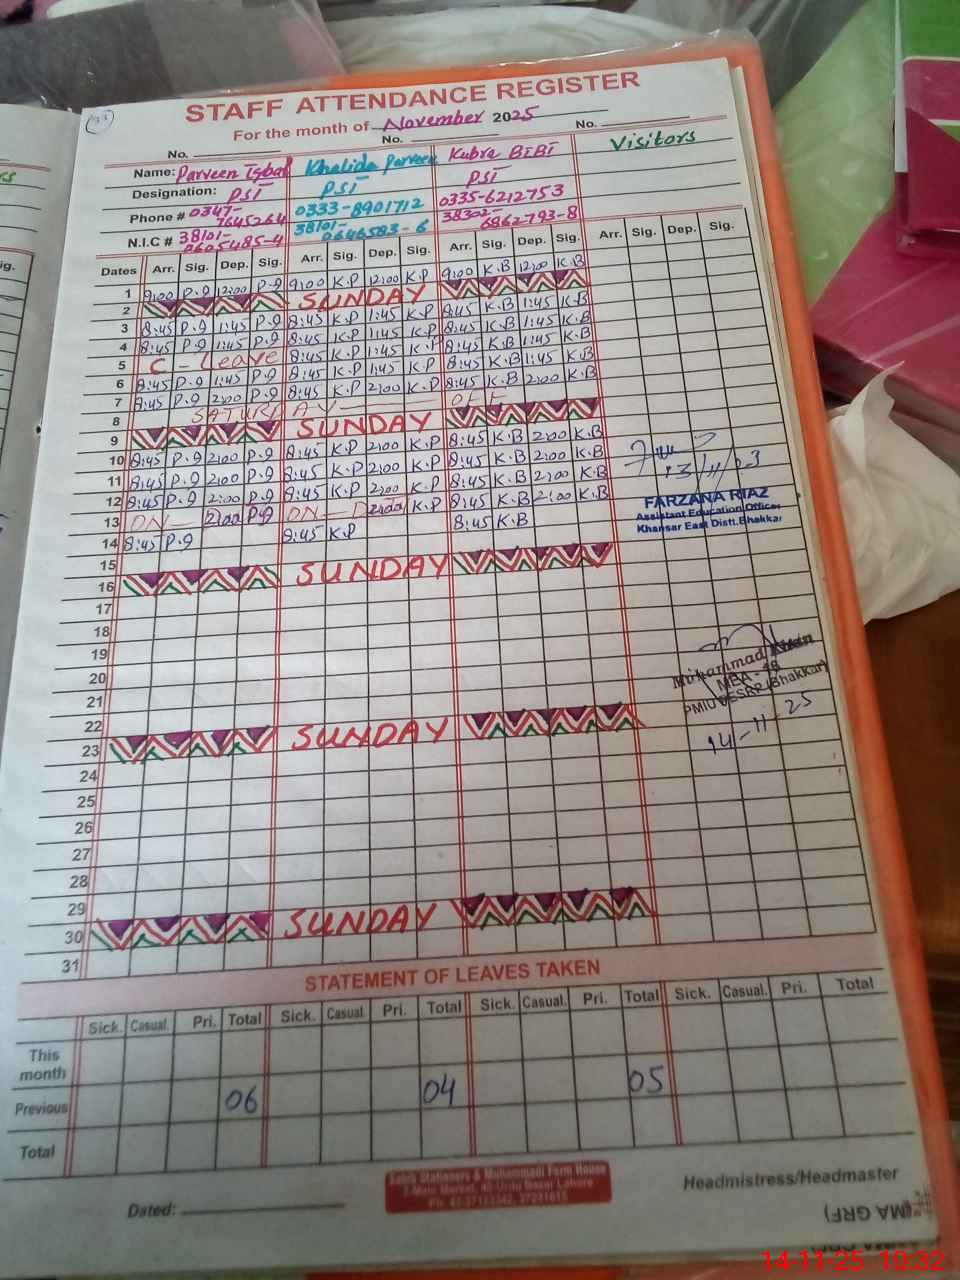 STAFF ATTENDANCE REGISTER
For the month of November 2025
No. No. No.
Name: Parveen Iqbal Khalida Parveen Kubra BIBI Visitors
Designation: PST PST PST
Phone # 0347-7645264 0333-8901712 0335-6212753
N.I.C # 38101-0605485-4 38101-0646583-6 38302-6862793-8
Dates Arr. Sig. Dep. Sig. Arr. Sig. Dep. Sig. Arr. Sig. Dep. Sig. Arr. Sig. Dep. Sig.
1 9:00 P.I 12:00 P.I 9:00 K.P 12:00 K.P 9:00 K.B 12:00 K.B
2 SUNDAY
3 8:45 P.I 1:45 P.I 8:45 K.P 1:45 K.P 8:45 K.B 1:45 K.B
4 8:45 P.I 1:45 P.I 8:45 K.P 1:45 K.P 8:45 K.B 1:45 K.B
5 C - Leave 8:45 K.P 1:45 K.P 8:45 K.B 1:45 K.B
6 8:45 P.I 1:45 P.I 8:45 K.P 1:45 K.P 8:45 K.B 1:45 K.B
7 8:45 P.I 2:00 P.I 8:45 K.P 2:00 K.P 8:45 K.B 2:00 K.B
8 SATURDAY OFF
9 SUNDAY
10 8:45 P.I 2:00 P.I 8:45 K.P 2:00 K.P 8:45 K.B 2:00 K.B
11 8:45 P.I 2:00 P.I 8:45 K.P 2:00 K.P 8:45 K.B 2:00 K.B
12 8:45 P.I 2:00 P.I 8:45 K.P 2:00 K.P 8:45 K.B 2:00 K.B
13 ON 2:00 P.I ON 2:00 K.P 8:45 K.B 2:00 K.B
14 8:45 P.I 8:45 K.P 8:45 K.B
FARZANA RIAZ
Assistant Education Officer
Khansar East Distt. Bhakkar
15
16 SUNDAY
17
18
19
20
Muhammad Khan
MEA-18
PMIU PESRP (Bhakkar)
14-11-25
21
22
23 SUNDAY
24
25
26
27
28
29
30 SUNDAY
31
STATEMENT OF LEAVES TAKEN
Sick. Casual. Pri. Total Sick. Casual. Pri. Total Sick. Casual. Pri. Total Sick. Casual. Pri. Total
This month
Previous 06 04 05
Total
Dated:
Headmistress/Headmaster
14-11-25 10:32